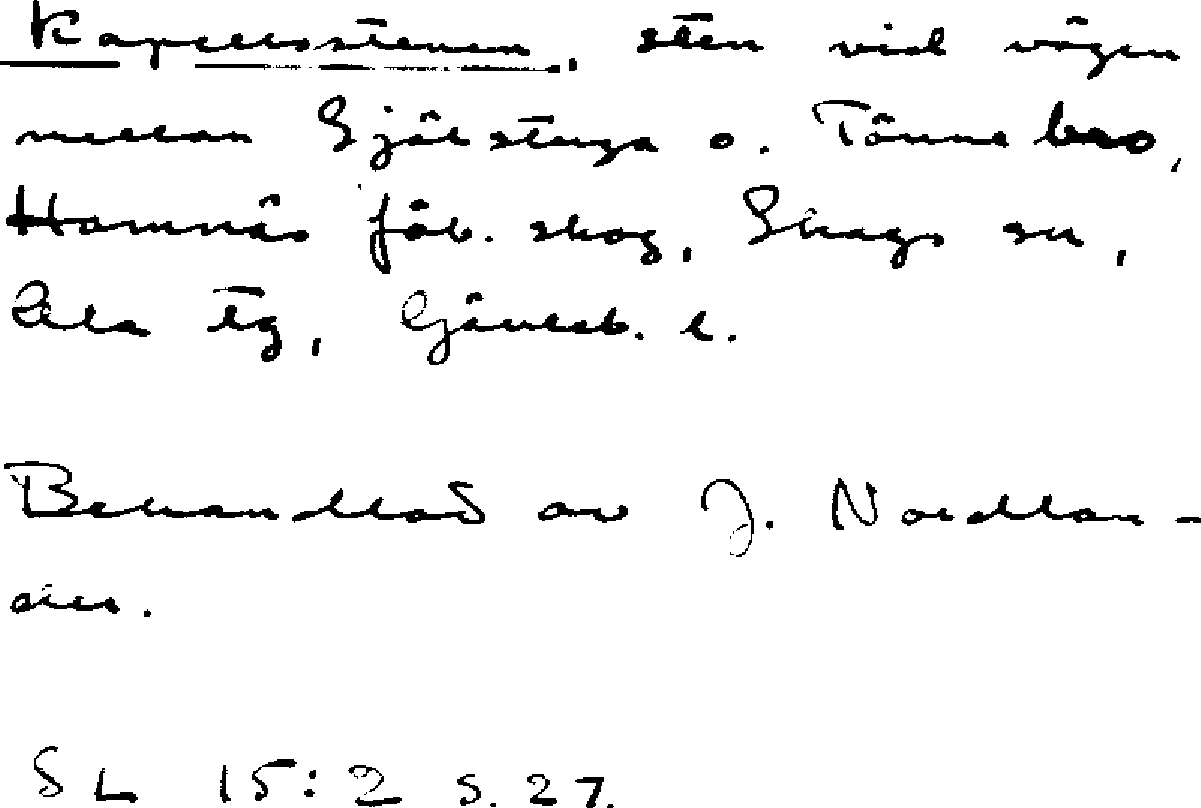 Kapellsstenen, sten vid vägen
mellan Själstuga o. Tönnebro,
Hamnäs fäb. skog, Skogs sn,
Ala tg, Gävleb. l.
Behandlad av J. Nordlan-
der.
SL 15:2 s. 27.